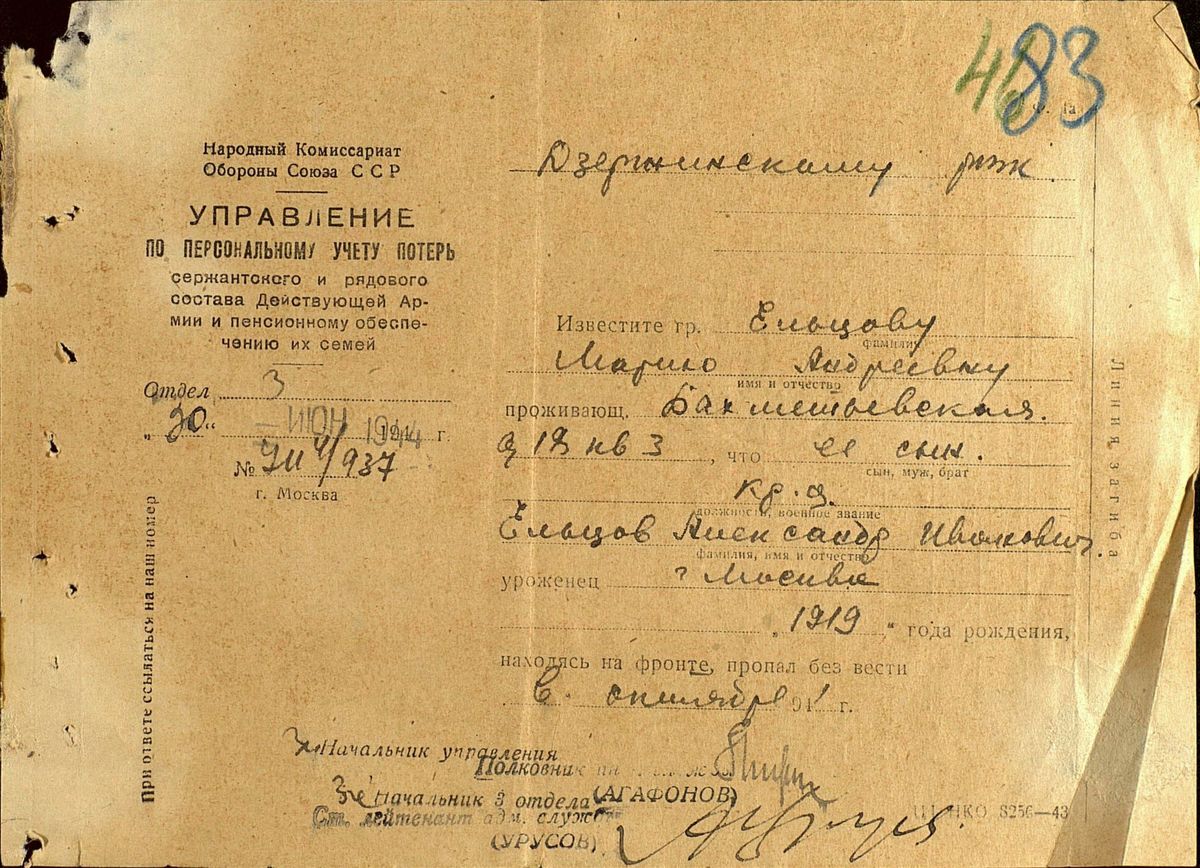 4683
Народный Комиссариат
Обороны Союза ССР
УПРАВЛЕНИЕ
ПО ПЕРСОНАЛЬНОМУ УЧЕТУ ПОТЕРЬ
сержантского и рядового
состава Действующей Ар-
мии и пенсионному обеспе-
чению их семей
Отдел 3
„30“ ИЮН 1944 г.
№ 4/937
г. Москва
При ответе ссылаться на наш номер
Дзержинскому рвк
Известите гр. Ельцову
фамилия
Марию Андреевну
имя и отчество
проживающ. Бахметьевская.
д 18 кв 3, что ее сын.
сын, муж, брат
кр-ц.
должность, военное звание
Ельцов Александр Иванович.
фамилия, имя и отчество
уроженец г Москва
„1919“ года рождения,
находясь на фронте, пропал без вести
в октябре 941 г.
Линия загиба
Начальник управления
Полковник
(АГАФОНОВ)
Начальник 3 отдела
Ст. лейтенант адм. службы
(УРУСОВ)
НКО 8256—43